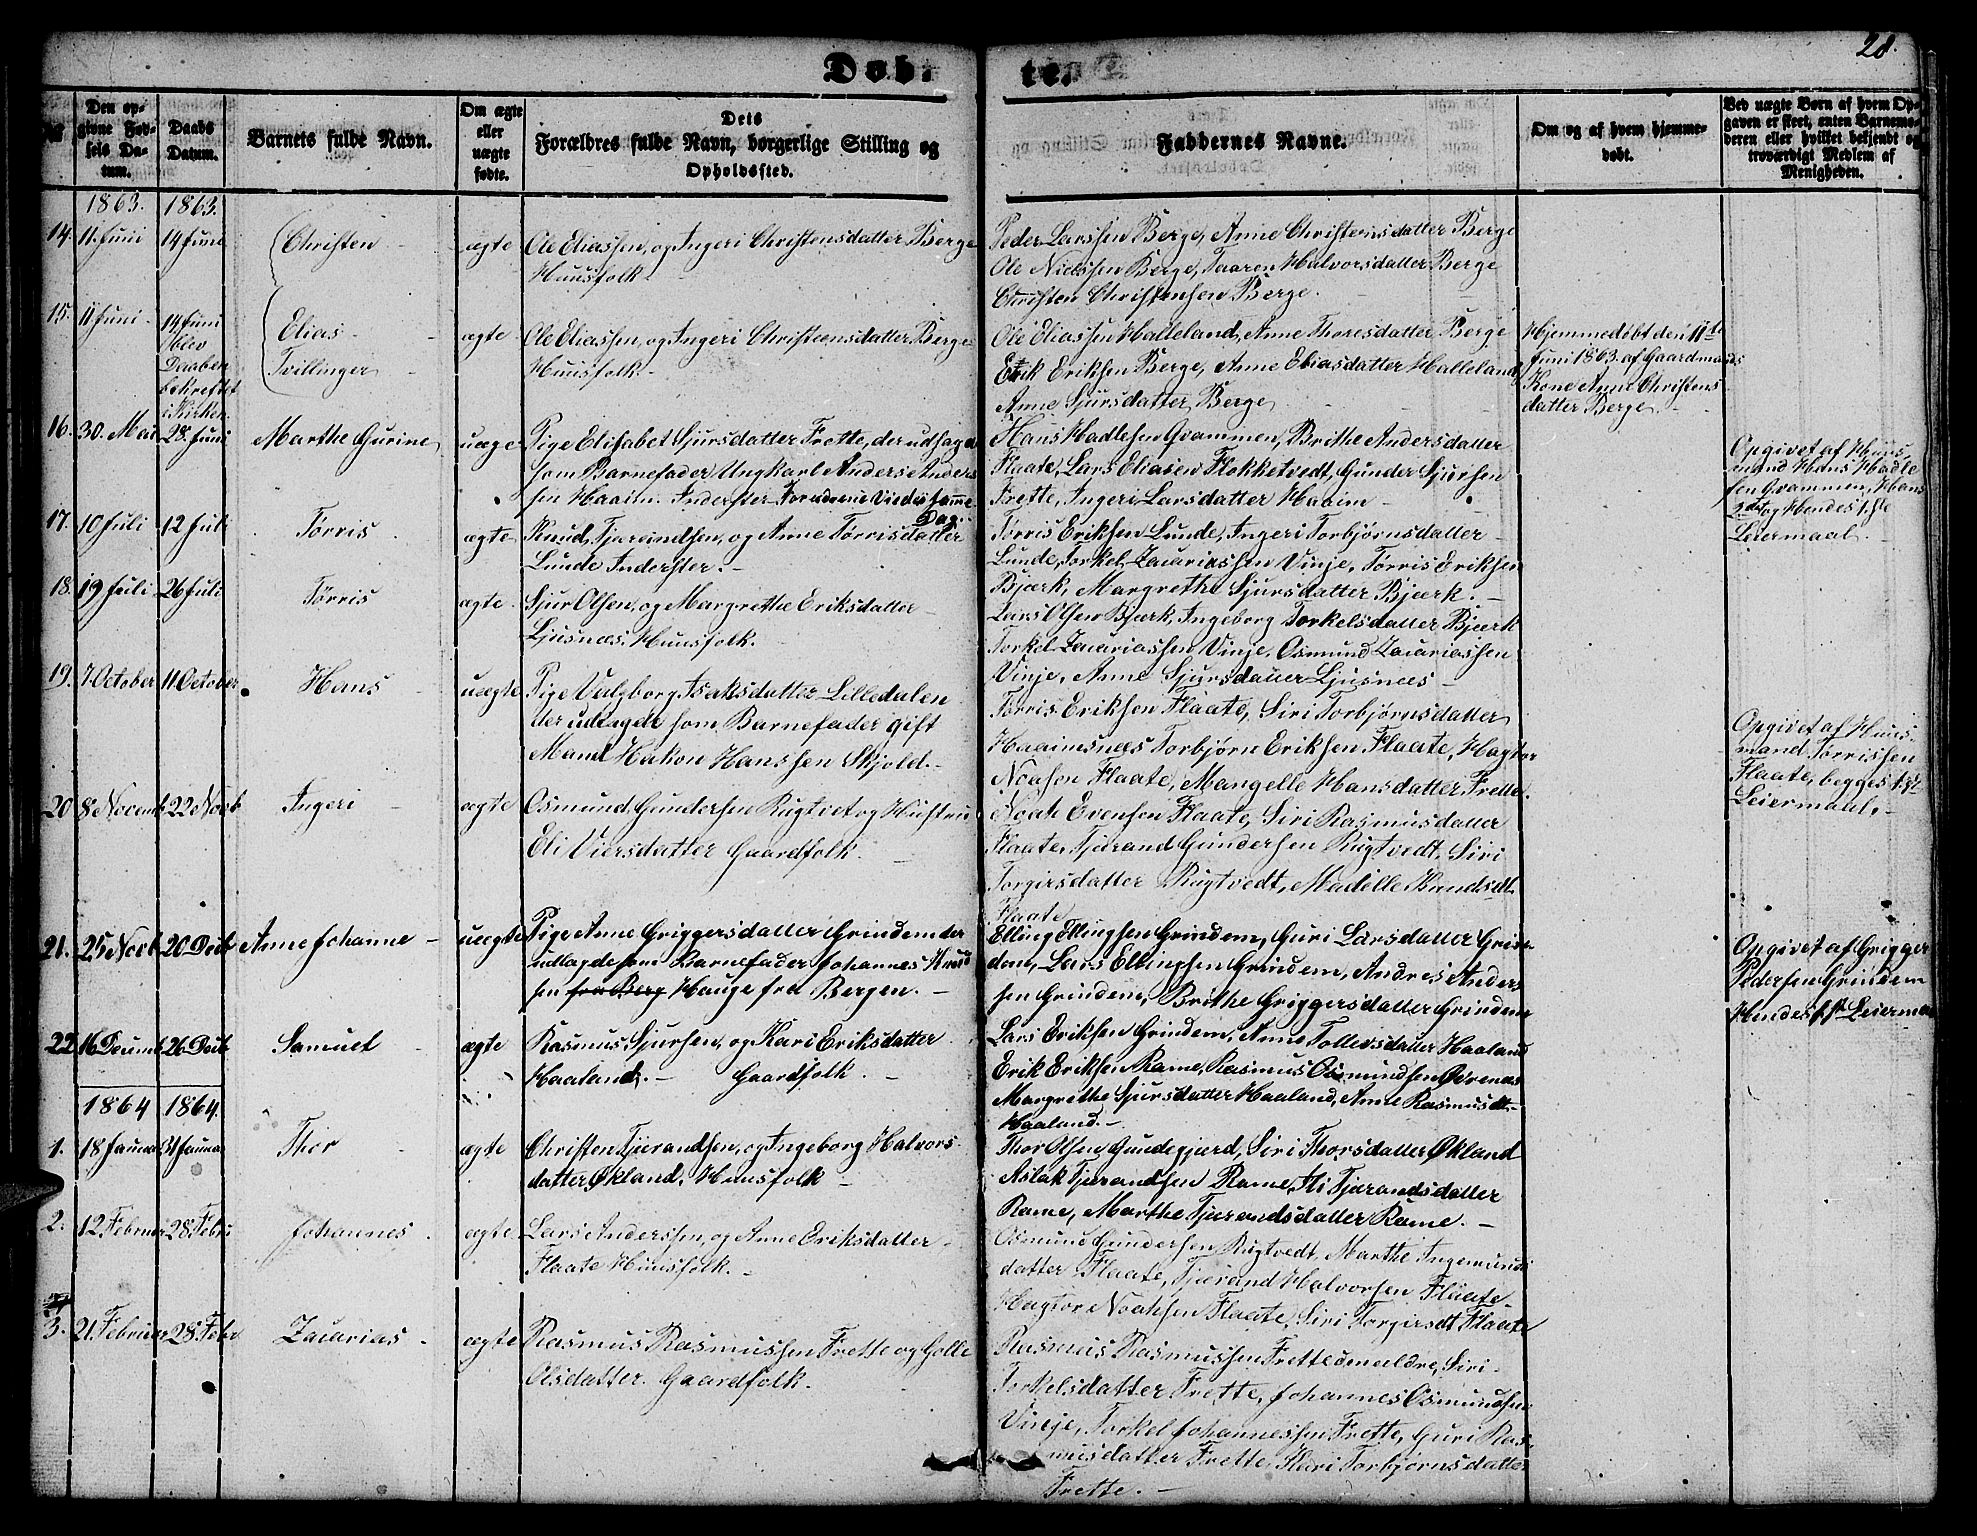 Døb.
te.
28.
No
Den op-
givne Fød-
sels Da-
tum.
Daabs
Datum.
Barnets fulde Navn.
Om ægte
eller
uægte
fødte.
Dets
Forældres fulde Navn, borgerlige Stilling og
Opholdssted.
Faddernes Navne.
Om og af hvem hjemme-
døbt.
Ved uægte Børn af hvem Op-
gaven er skeet, enten Barnemo-
deren eller hvilket bekjendt og
troværdigt Medlem af
Menigheden.
1863. 1863.
14. 11. Juni 14 Juni Christen - ægte
Ole Eliassen, og Ingeri Christensdatter Berge
Huusfolk.
Peder Larssen Berge, Anne Christensdatter Berge
Ole Nielssen Berge, Taaren Halvorsdatter Berge
Christen Christensen Berge.
15. 11 Juni. 14 Juni
blev
Daaben
bekreftet
i Kirken
Elias -
Tvillinger
ægte
Ole Eliassen, og Ingeri Christensdatter Berge
Huusfolk.-
Ole Eliassen Halleland, Anne Thoresdatter Berge
Erik Eriksen Berge, Anne Eliasdatter Halleland,
Anne Sjursdatter Berge
Hjemmedøbt den 11te
Juni 1863. af Gaardmands
Kone Anne Christens
datter Berge. -
16. 30. Mai 28. Juni Marthe Gurine uægte
Pige Elisabet Sjursdatter Frette, der udsagde
som Barnefader Ungkarl Anders Anders
sen Haaim. Inderster Foreldrene Viedes samme
Dag.
Hans Hadlesen Qvammen, Brithe Andersdatter
Flaate, Lars Eliasen Flokketvedt, Gunder Sjursen
Frette, Ingeri Larsdatter Haaim -
Opgivet af Huus,
mand Hans Hadle
sen Qvammen, Hans
2det og Hendes 1ste
Leiermaal. -
17. 10 Juli 12 Juli Tørris ægte
Knud Tjerandsen, og Anne Tørrisdatter
Lunde Inderster. -
Tørris Eriksen Lunde, Ingeri Torbjørnsdatter
Lunde, Torkel Zacariassen Vinje, Tørris Eriksen
Bjærk, Margrethe Sjursdatter Bjærk. -
18. 19 Juli 26 Juli Tørris ægte
Sjur Olsen, og Margrethe Eriksdatter
Ljusnæs. Huusfolk.
Lars Olsen Bjærk, Ingeborg Torkelsdatter Bjærk
Torkel Zacariassen Vinje, Osmund Zacariassen
Vinje, Anne Sjursdatter Ljusnæs -
19. 7 October 11 October. Hans uægte
Pige Valgborg Isaksdatter Lilledalen
der udlagde som Barnefader gift
Mand Hakon Hanssen Skjold. -
Tørris Eriksen Flaate, Siri Torbjørnsdatter
Haaimsnæs Torbjørn Eriksen Flaate, Hagtor
Noasen Flaate, Mangelle Hansdatter Frette.
Opgivet af Huus
mand Tørrissen
Flaate, begges 1ste
Leiermaal. -
20 8 Novemb. 22 Novb Ingeri - ægte
Osmund Gundersen Rugtvet og Hustru
Eli Viersdatter Gaardfolk. -
Noah Evensen Flaate, Siri Rasmusdatter
Flaate, Tjerand Gundersen Rugtvedt, Siri
Torgirsdatter Rugtvedt, Madelle Knudsdt.
Flaate
21. 25 Novb 20 Decb Anne Johanne - uægte
Pige Anne Griggersdatter Grindem der
udlagde som Barnefader Johannes Knud
sen fra Berg Hauge fra Bergen. -
Elling Ellingsen Grindem, Guri Larsdatter Grin-
dem, Lars Ellingsen Grindem, Andres Anders
sen Grindem, Brithe Griggersdatter Grindem
Opgivet af Grigger
Pedersen Grindem
Hendes 1ste Leierma
22. 16 Decemb. 26 Decb Samuel - ægte
Rasmus Sjursen, og Kari Eriksdatter
Haaland. - Gaardfolk. -
Lars Eriksen Grindem, Anne Tollevsdatter Haaland
Erik Eriksen Rame, Rasmus Osmundsen Øvrenæs
Margrethe Sjursdatter Haaland, Anne Rasmusdt.
Haaland. -
1864 1864.
1. 18 Januar 31 Januar Thor - ægte
Christen Tjerandsen, og Ingeborg Halvors-
datter Økland, Huusfolk -
Thor Olsen Gundegjerd, Siri Thorsdatter Økland
Aslak Tjerandsen Rame, Eli Tjerandsdatter
Rame, Marthe Tjerandsdatter Rame. -
2. 12. Februar 28. Febr Johannes. ægte
Lars Anderssen, og Anne Eriksdatter
Flaate Huusfolk. -
Osmund Gundersen Rugtvedt, Marthe Ingemunds
datter Flaate, Tjerand Halvorsen Flaate
Hagtor Noahsen Flaate, Siri Torgirsdt Flaate
3. 21. Februar 28. Febr Zacarias - ægte
Rasmus Rasmussen Frette og Golle
Olsdatter. Gaardfolk.
Rasmus Rasmussen Frette den eldre, Siri
Torkelsdatter Frette, Johannes Osmundsen
Vinje, Torkel Johannessen Frette, Guri Ras-
musdatter Frette, Kari Torbjørnsdatter
Frette. -